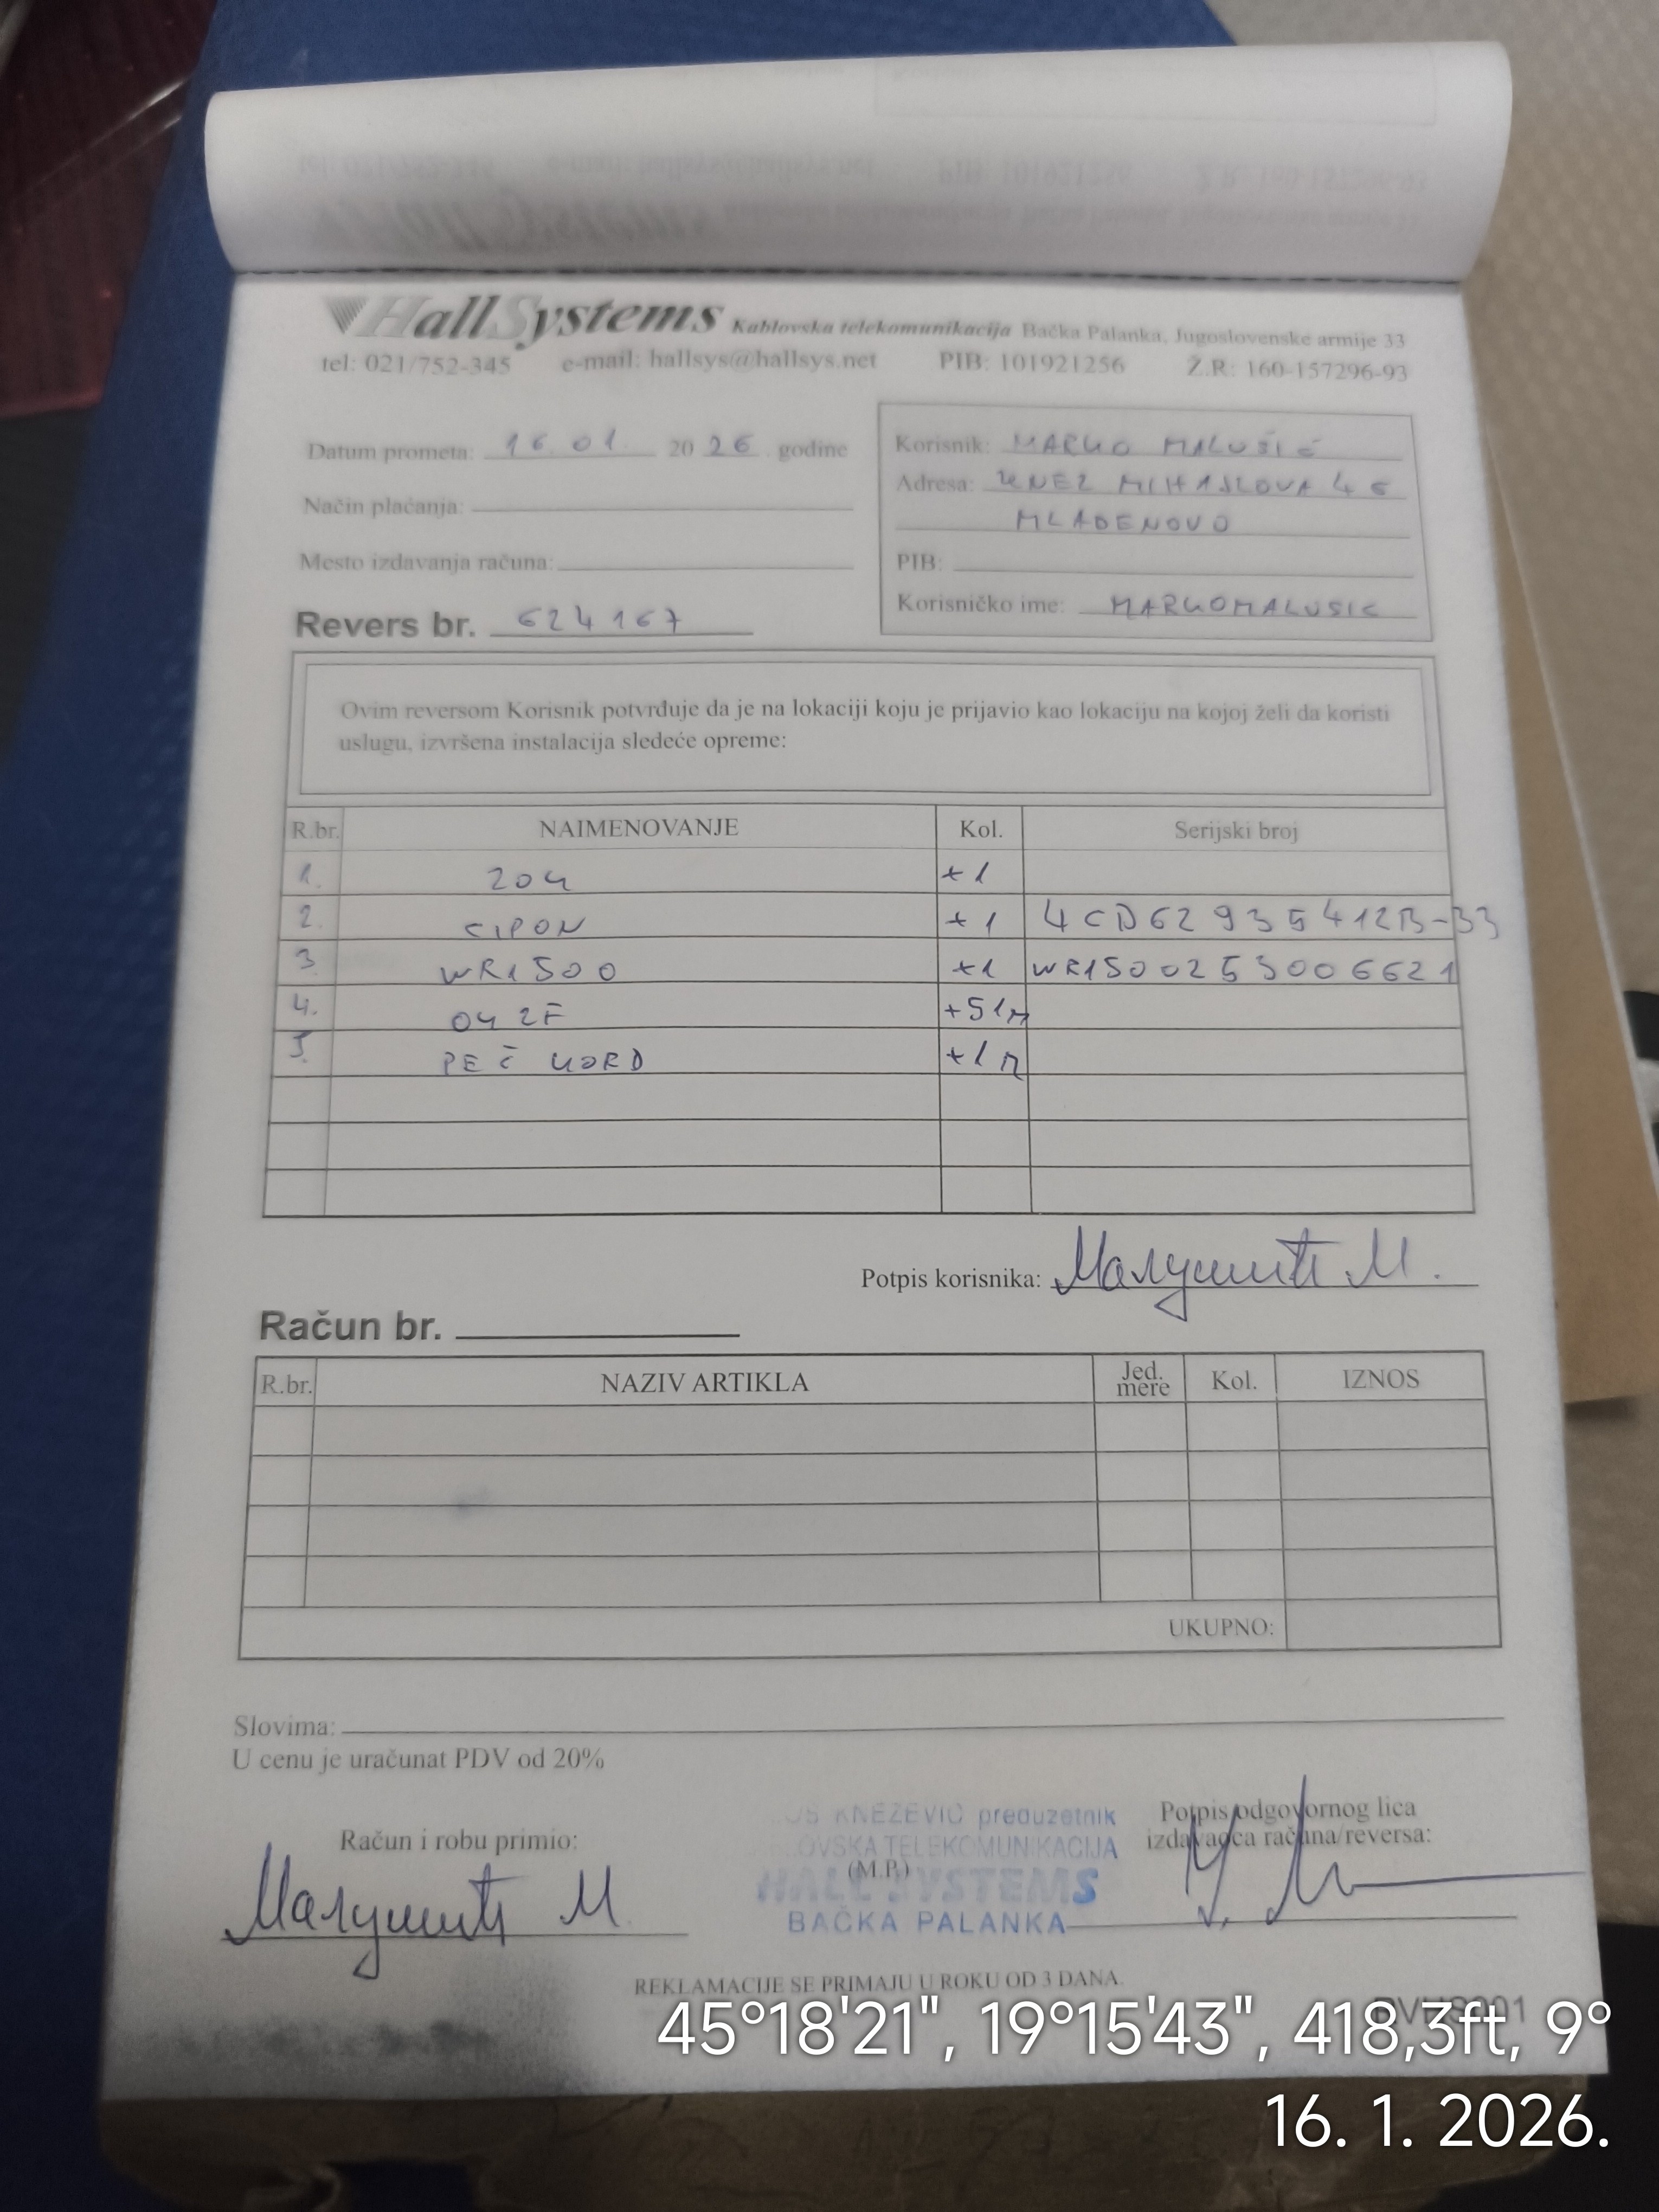 HallSystems Kablovska telekomunikacija Bačka Palanka, Jugoslovenske armije 33
tel: 021/752-345 e-mail: hallsys@hallsys.net PIB: 101921256 Ž.R: 160-157296-93
Datum prometa: 16.01. 2026. godine
Način plaćanja:
Mesto izdavanja računa:
Revers br. 624167
Korisnik: MARKO MALUŠIĆ
Adresa: KNEZ MIHAJLOVA 46
MLADENOVO
PIB:
Korisničko ime: MARKOMALUSIC
Ovim reversom Korisnik potvrđuje da je na lokaciji koju je prijavio kao lokaciju na kojoj želi da koristi
uslugu, izvršena instalacija sledeće opreme:
R.br. NAIMENOVANJE Kol. Serijski broj
1. ZOK +1
2. CIPON +1 4CD62935412B-33
3 WR1500 +1 WR1500253006621
4. OK 2F +51M
5. PEČ KORD +1
Potpis korisnika: Малушић М.
Račun br.
R.br. NAZIV ARTIKLA Jed. mere Kol. IZNOS
UKUPNO:
Slovima:
U cenu je uračunat PDV od 20%
Račun i robu primio:
Малушић М.
KNEZEVIC preduzetnik
OVSKA TELEKOMUNIKACIJA
(M.P.)
HALL SYSTEMS
BAČKA PALANKA
Potpis odgovornog lica
izdavaoca računa/reversa:
REKLAMACIJE SE PRIMAJU U ROKU OD 3 DANA.
45°18'21", 19°15'43", 418,3ft, 9°
16. 1. 2026.